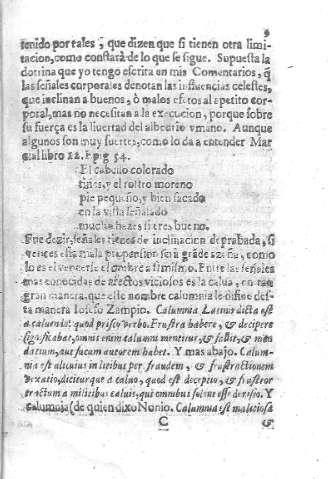 9
tenido por tales, que dizen que si tienen otra limi-
tacion, como constará de lo que se sigue. Supuesta la
dotrina que yo tengo escrita en mis Comentarios, q̃
las señales corporales denotan las influencias celestes,
que inclinan a buenos, ò malos efetos al apetito cor-
poral, mas no necesitan a la execucion, porque sobre
su fuerça es la libertad del albedrio vmano. Aunque
algunos son muy fuertes, como lo da a entender Mar
cial libro 12. Epig 54.
El cabello colorado
tines, y el rostro moreno
pie pequeño, y bien sacado
en la vista señalado
mucho hazes si eres bueno.
Fue dezir, señales tienes de inclinacion deprabada, si
vences esta mala propension será grãde azaña, como
lo es el vencerse el ombre a si mismo. Entre las señales
mas conocidas de afectos viciosos es la calua, en tan
gran manera, que este nombre calumnia le difine des-
ta manera Iosefo Zampio. Calumna Latinè dicta est
à caluenio: quod prisco verbo. Frustra habere, & decipere
significabat, omnis enim calumni mentitur, & fallit, & men
datium, aut fucum autorem habet. Y mas abajo. Calum-
nia est alicuius in litibus per fraudem, & frustractionem
vexatio, diciturque a caluo, quod est deceptio, & frustror
tractum a militibus caluis, qui omnibus solent esse derisio. Y
calumnia (de quien dixo Nonio. Calumnia est malitiosa
C
&